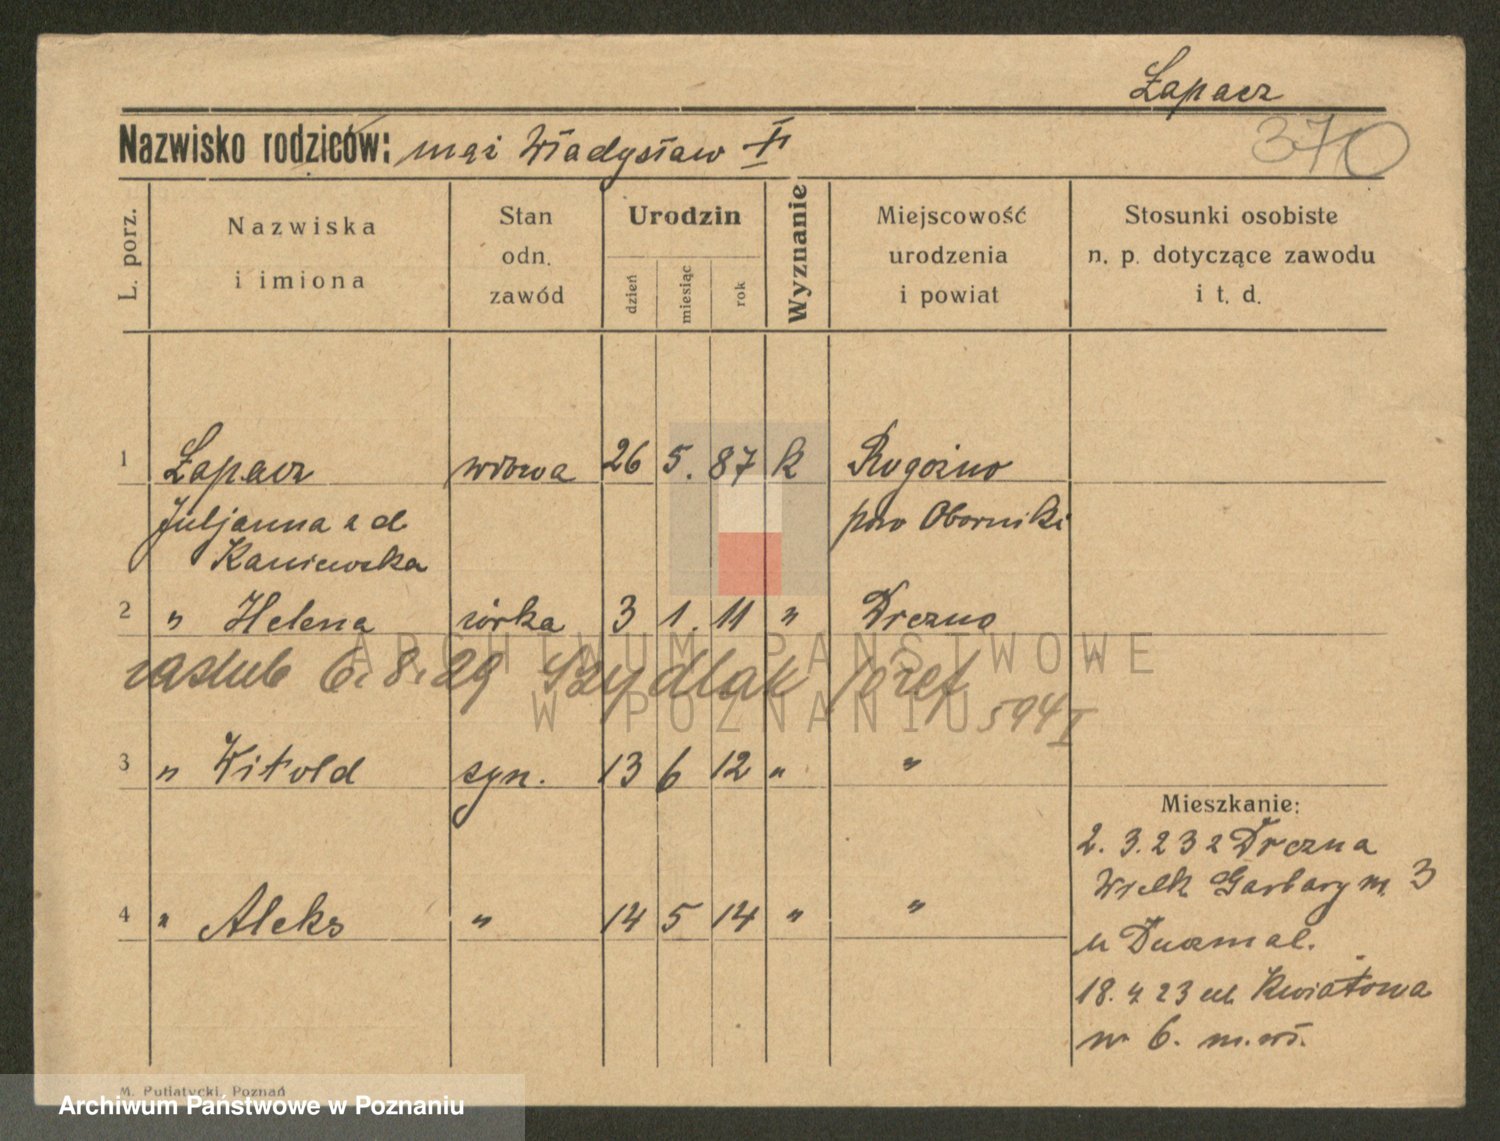 Łapacz
370
Nazwisko rodziców: mąż Władysław
L. porz.
Nazwiska
i imiona
Stan
odn.
zawód
Urodzin
dzień
miesiąc
rok
Wyznanie
Miejscowość
urodzenia
i powiat
Stosunki osobiste
n. p. dotyczące zawodu
i t. d.
1 Łapacz wdowa 26 5. 87 k Rogoźno
Juljanna z d pow Oborniki
Kaniewska
2 " Helena córka 3 1. 11 " Drezno
zaślub 6. 8. 29 Szydlak Józef
594 I
3 " Witold syn. 13 6 12 " "
Mieszkanie:
2. 3. 23 z Drezna
Wielk Garbary m. 3
4 " Aleks " 14 5 14 " "
u
18. 4 23 ul. Kwiatowa
nr 6. m.
M. Putiatycki, Poznań
ARCHIWUM PAŃSTWOWE
W POZNANIU
Archiwum Państwowe w Poznaniu